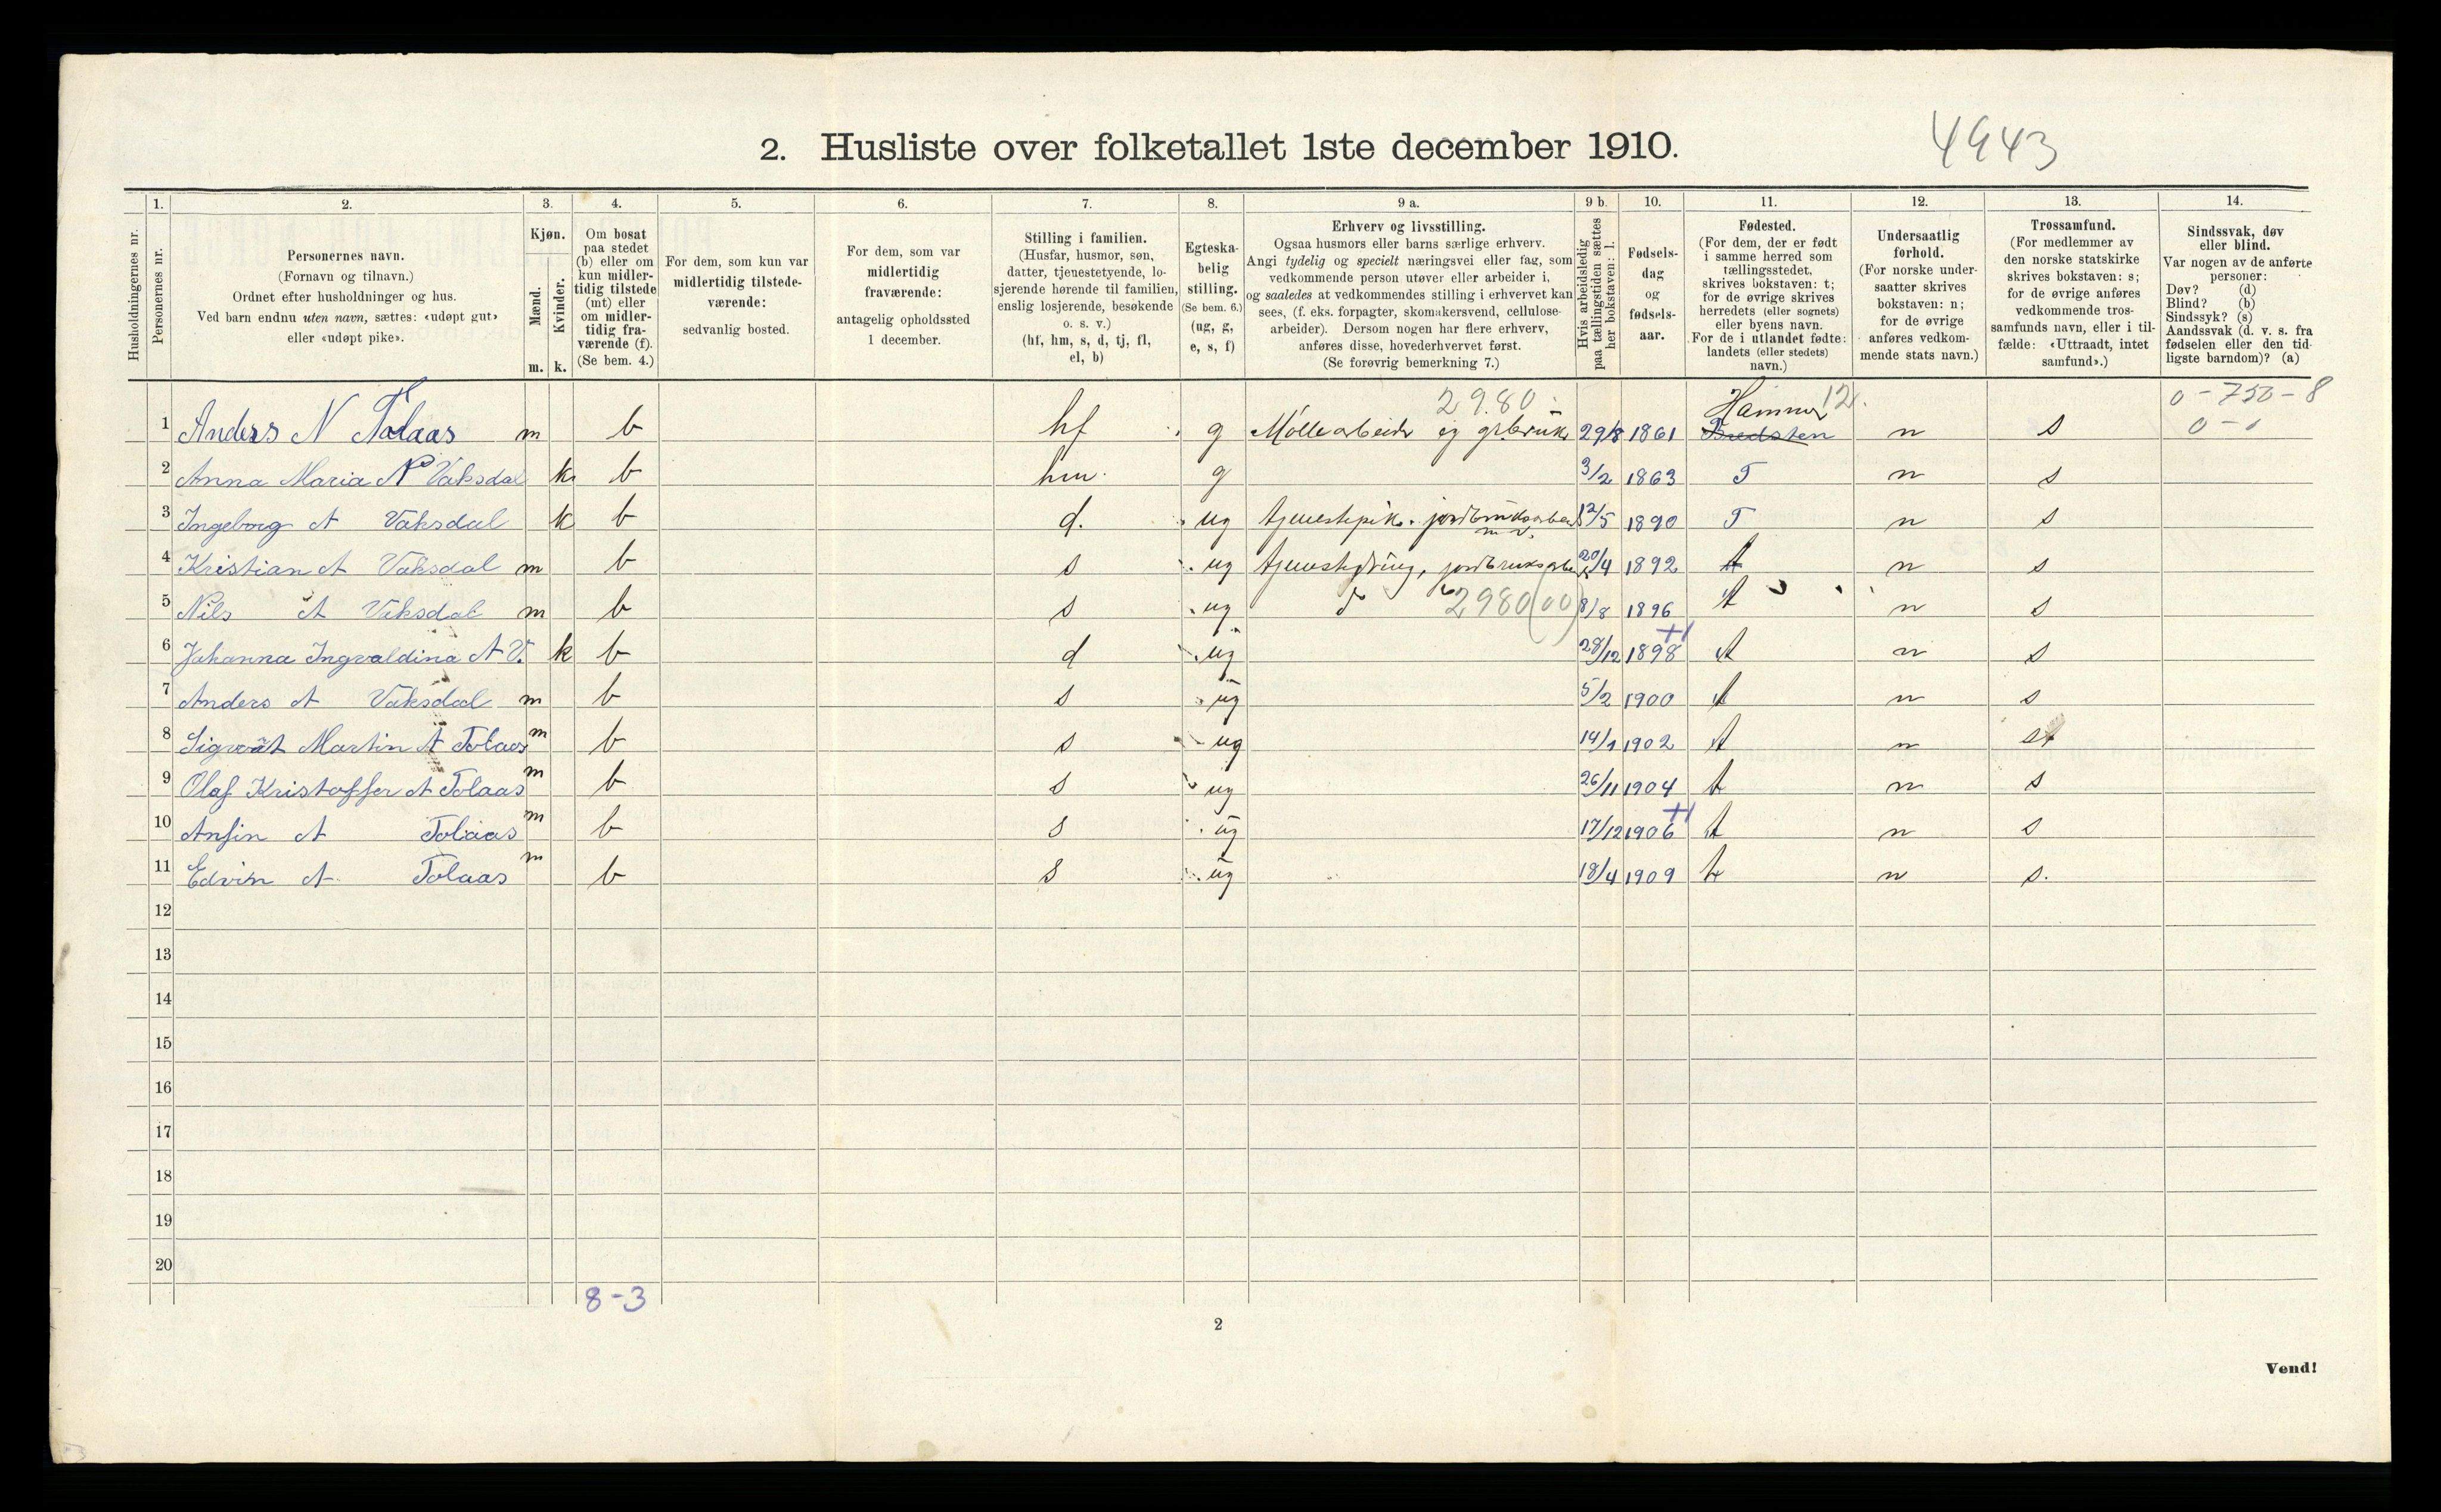 2. Husliste over folketallet 1ste december 1910.
4943
Husholdningernes nr.
1. Personernes nr.
2. Personernes navn.
(Fornavn og tilnavn.)
Ordnet efter husholdninger og hus.
Ved barn endnu uten navn, sættes: «udøpt gut»
eller «udøpt pike».
3. Kjøn.
Mænd. m.
Kvinder. k.
4. Om bosat
paa stedet
(b) eller om
kun midler-
tidig tilstede
(mt) eller
om midler-
tidig fra-
værende (f).
(Se bem. 4.)
5. For dem, som kun var
midlertidig tilstede-
værende:
sedvanlig bosted.
6. For dem, som var
midlertidig
fraværende:
antagelig opholdssted
1 december.
7. Stilling i familien.
(Husfar, husmor, søn,
datter, tjenestetyende, lo-
sjerende hørende til familien,
enslig losjerende, besøkende
o. s. v.)
(hf, hm, s, d, tj, fl,
el, b)
8. Egteska-
belig
stilling.
(Se bem. 6.)
(ug, g,
e, s, f)
9 a. Erhverv og livsstilling.
Ogsaa husmors eller barns særlige erhverv.
Angi tydelig og specielt næringsvei eller fag, som
vedkommende person utøver eller arbeider i,
og saaledes at vedkommendes stilling i erhvervet kan
sees, (f. eks. forpagter, skomakersvend, cellulose-
arbeider). Dersom nogen har flere erhverv,
anføres disse, hovederhvervet først.
(Se forøvrig bemerkning 7.)
9 b. Hvis arbeidsledig
paa tællingstiden sættes
her bokstaven: l.
10. Fødsels-
dag
og
fødsels-
aar.
11. Fødested.
(For dem, der er født
i samme herred som
tællingsstedet,
skrives bokstaven: t;
for de øvrige skrives
herredets (eller sognets)
eller byens navn.
For de i utlandet fødte:
landets (eller stedets)
navn.)
12. Undersaatlig
forhold.
(For norske under-
saatter skrives
bokstaven: n;
for de øvrige
anføres vedkom-
mende stats navn.)
13. Trossamfund.
(For medlemmer av
den norske statskirke
skrives bokstaven: s;
for de øvrige anføres
vedkommende tros-
samfunds navn, eller i til-
fælde: «Uttraadt, intet
samfund».)
14. Sindssvak, døv
eller blind.
Var nogen av de anførte
personer:
Døv? (d)
Blind? (b)
Sindssyk? (s)
Aandssvak (d. v. s. fra
fødselen eller den tid-
ligste barndom)? (a)
2980 Hammer 12. 0-750-8
1 Anders N Tolaas m b hf g Møllearbeider og grbruk 29/8 1861 Bredsten n s 0-1
2 Anna Maria N Vaksdal k b hm. g 3/2 1863 T n s
3 Ingeborg A Vaksdal k b d. ug tjenestepike. jordbruksarbeid m v. 12/5 1890 T n s
4 Kristian A Vaksdal m b s ug tjenestedreng, jordbruksarbeid 20/4 1892 t n s
5 Nils A Vaksdal m b s ug d 2980(00) 8/8 1896 t n s
6 Johanna Ingvaldina A V. k b d ug 28/12 1898 +1 t n s
7 Anders A Vaksdal m b s ug 5/2 1900 t n s
8 Sigvat Martin A Tolaas m b s ug 14/1 1902 t n s
9 Olaf Kristoffer A Tolaas m b s ug 26/11 1904 t n s
10 Anfin A Tolaas m b s ug 17/12 1906 +1 t n s
11 Edvin A Tolaas m b s ug 18/4 1909 t n s.
12
13
14
15
16
17
18
19
20
8-3
2
Vend!